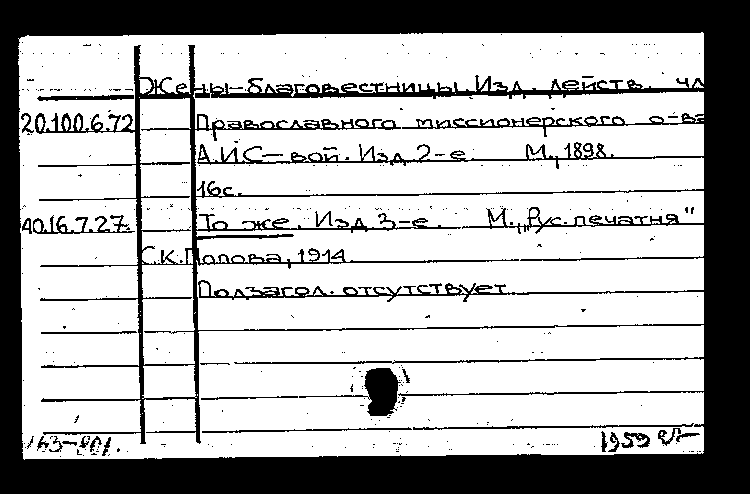 Жены-благовестницы. Изд. действ. чл
20.100.6.72 Православного миссионерского о-ва
А.ИС-вой. Изд 2-е М., 1898.
16с.
40.16.7.27. То же. Изд 3-е. М., „Рус. печатня"
С.К.Попова, 1914.
Подзагол. отсутствует
163-801. 1959